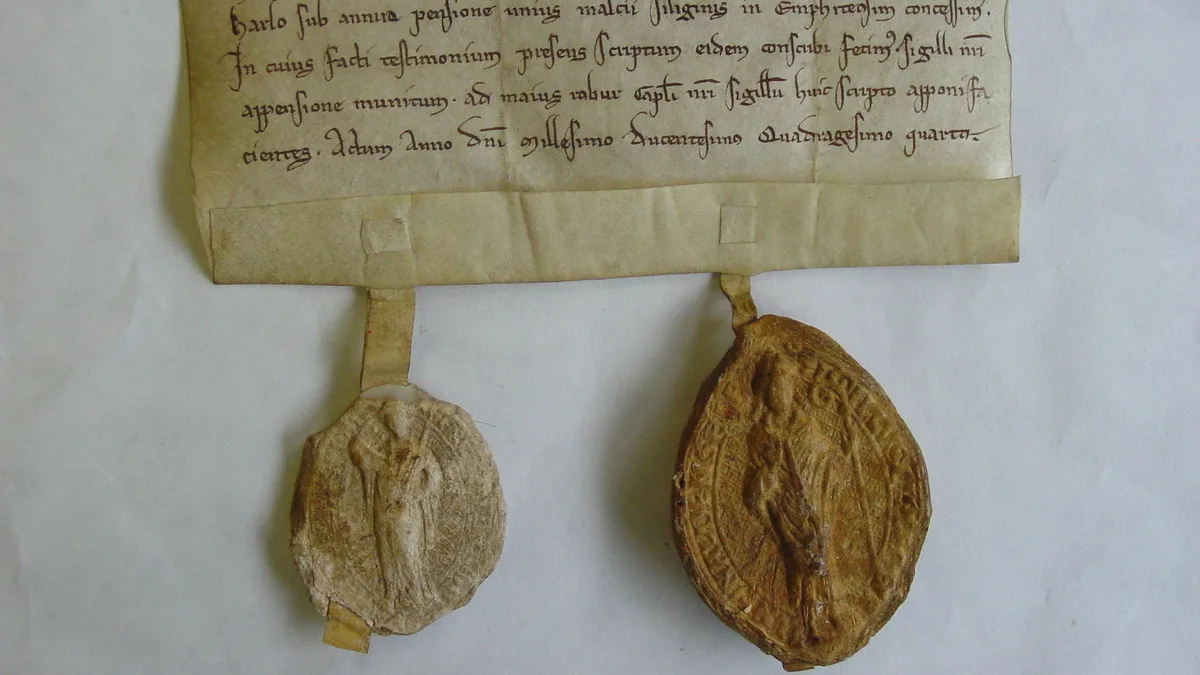 harlo sub annua pensione unius maltii siliginis in Emphiteosim concessim.
In cuius facti testimonium presens scriptum eidem conscribi fecim9 sigilli nr̄i
appensione munitum. ad maius robur Capl̄i nr̄i sigillū huic scripto apponi fa
cientes. Actum Anno Dn̄i Millesimo Ducentesimo Quadragesimo quarto.